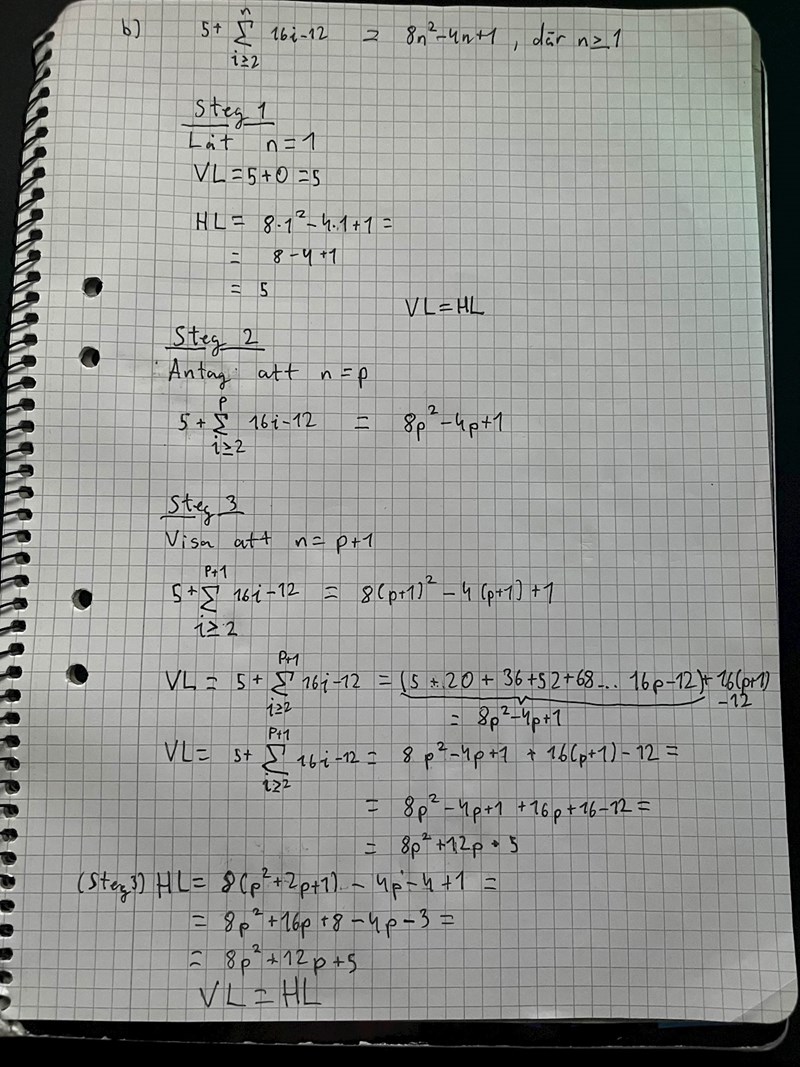 b) 5+ n∑i≥2 16i-12 = 8n²-4n+1, där n≥1
Steg 1
Låt n=1
VL=5+0=5
HL= 8·1²-4·1+1=
= 8-4+1
= 5
VL=HL
Steg 2
Antag att n=p
5+ p∑i≥2 16i-12 = 8p²-4p+1
Steg 3
Visa att n= p+1
5+ p+1∑i≥2 16i-12 = 8(p+1)²-4(p+1)+1
VL= 5+ p+1∑i≥2 16i-12 = (5+20+36+52+68... 16p-12)+16(p+1)
-12
= 8p²-4p+1
VL= 5+ p+1∑i≥2 16i-12= 8p²-4p+1 +16(p+1)-12=
= 8p²-4p+1 +16p+16-12=
= 8p²+12p+5
(Steg3) HL= 8(p²+2p+1)-4p-4+1 =
= 8p²+16p+8-4p-3=
= 8p²+12p+5
VL=HL